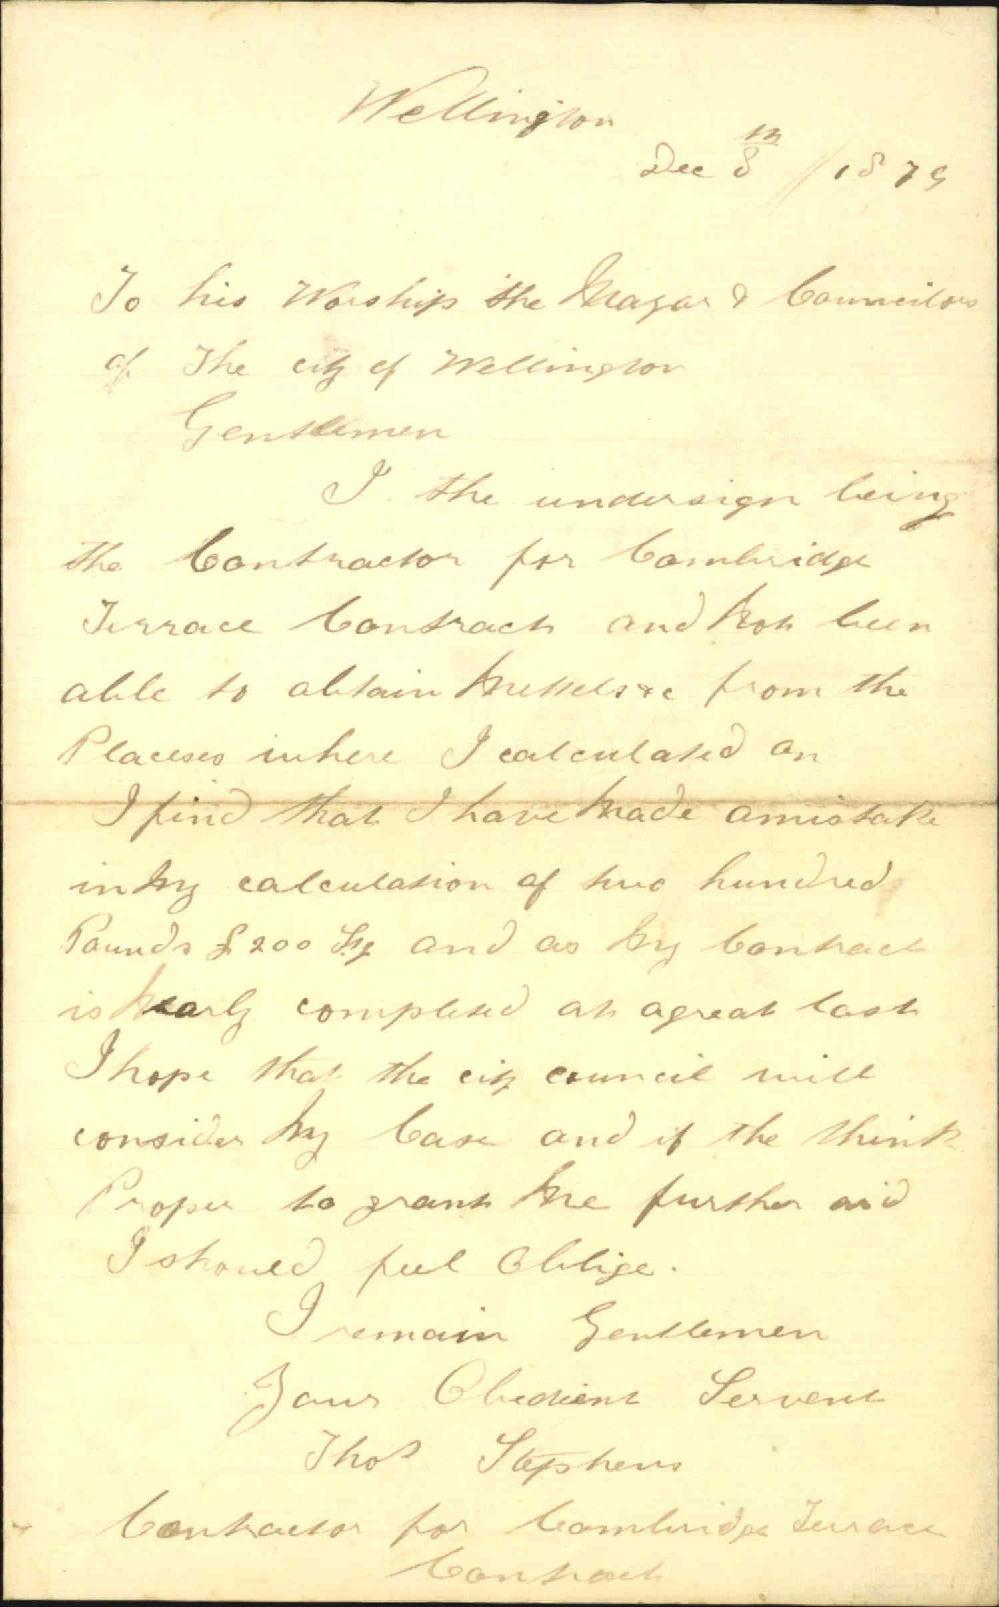 Wellington
Dec 8th // 1879
To his Worship the Mayor & Councilors
of The city of Wellington
Gentlemen
I the undersign being
the Contractor for Cambridge
Terrace Contract and Not been
able to obtain &c from the
Places where I calculated on
I find that I have Made amistake
in My calculation of two hundred
Pounds £200 and as My Contract
is Nearly completed at agreat Cost
I hope that the city council will
consider My Case and if the think
Proper to grant Me further aid
I should feel Oblige.
I remain Gentlemen
Your Obedient Servent
Thos Stephens
Contractor for Cambridge Terrace
Contract